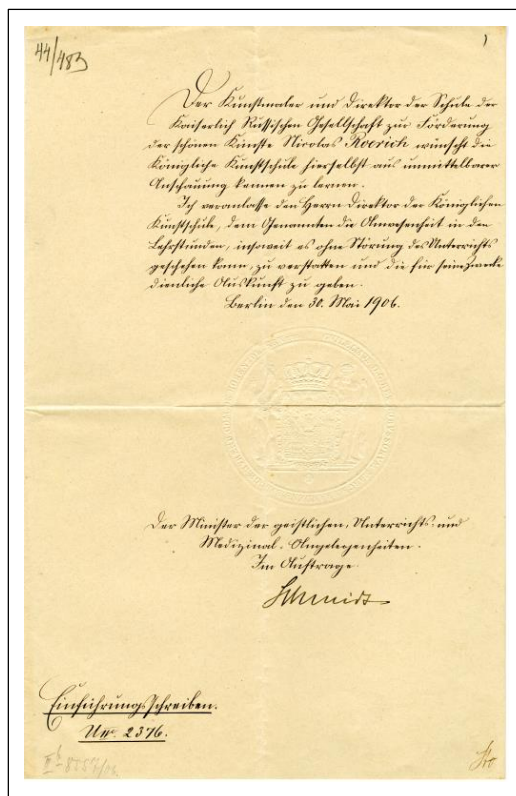 44/483
1
Der Kunstmaler und Direktor der Schule der
Kaiserlich Russischen Gesellschaft zur Förderung
der schönen Künste Nicolas Roerich wünscht die
Königliche Kunstschule hierselbst aus unmittelbarer
Anschauung kennen zu lernen.
Ich veranlasse den Herrn Direktor der Königlichen
Kunstschule, dem Genannten die Anwesenheit in den
Lehrstunden, insoweit es ohne Störung des Unterrichts
geschehen kann, zu verstatten und die für seine Zwecke
dienliche Auskunft zu geben.
Berlin den 30. Mai 1906.
Der Minister der geistlichen, Unterrichts- und
Medizinal-Angelegenheiten.
Im Auftrage
Schmidt
Einführungsschreiben.
2376.